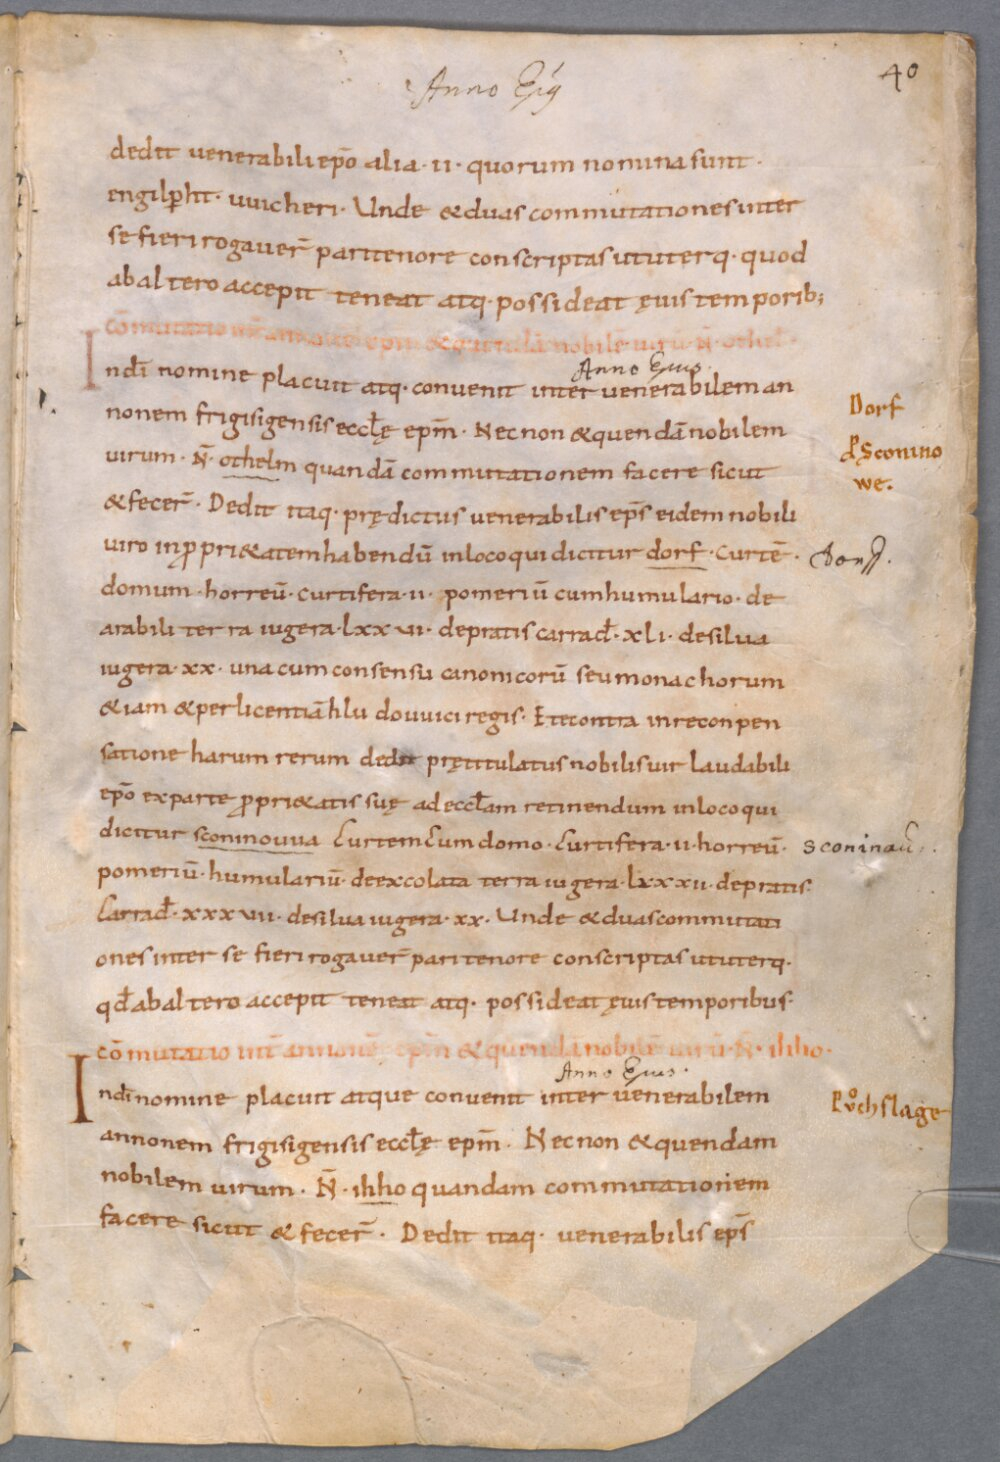 Anno Epi
40
dedit venerabili ep̄o alia · ii · quorum nomina sunt ·
engilp̄ht · uuicheri · Unde & duas commutationes inter
se fieri rogaver̄ pari tenore conscriptas ut uterq · quod
ab altero accepit teneat atq · possideat ęuis temporib;
cōmutatio int̄ annonē ep̄m & quendā nobilē uirū · N̄ · othel ·
Anno Epus ·
Indī nomine placuit atq · convenit inter venerabilem an
nonem frigisigensis eccl̄ę ep̄m · Nec non & quendā nobilem
virum · N̄ · othelm quandā commutationem facere sicut
& fecer̄ · Dedit itaq · pr̨edictus venerabilis ep̄s eidem nobili
viro in ꝓpri&atem habendū in loco qui dicitur dorf · Curtē ·
domum · horreū · curtifera · ii · pomeriū cum humulario · de
arabili terra iugera · lxxvii · de pratis carrad̄ · xli · de silua
iugera · xx · una cum consensu canonicorū seu monachorum
&iam & per licentiā hludouuici regis · E t econtra in reconpen
satione harum rerum dedit pr̨etitulatus nobilis uir laudabili
ep̄o ex parte ꝓpri&atis suę ad eccl̄am retinendum in loco qui
dicitur sconinouua Curtem Cum domo · Curtifera · ii · horreū ·
pomeriū · humulariū · de excolata terra iugera · lxxxii · de pratis ·
Carrad̄ · xxxvii · de silua iugera · xx · Unde & duas commutati
ones inter se fieri rogaver̄ pari tenore conscriptas ut uterq ·
qd̄ ab altero accepit teneat atq · possideat ęuis temporibus ·
cōmutatio int̄ annonē ep̄m & quendā nobilē uirū · N̄ · ihho ·
Anno Epus ·
Indī nomine placuit atque convenit inter venerabilem
annonem frigisigensis eccl̄ę ep̄m · Nec non & quendam
nobilem uirum · N̄ · ihho quandam commutationem
facere sicut & fecer̄ · Dedit itaq · venerabilis ep̄s
Dorf
Sconino
we.
sconinau
Puͦchslage